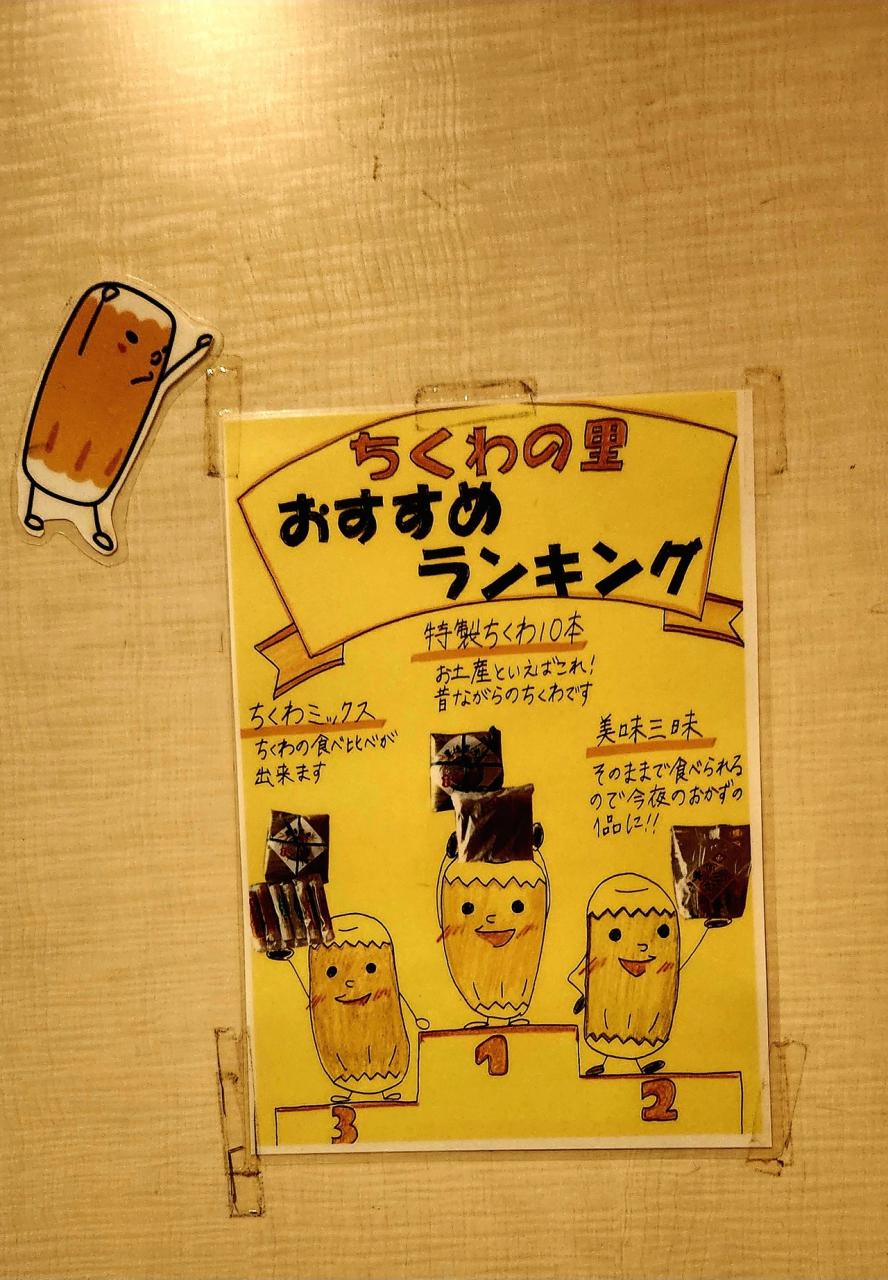 ちくわの里
おすすめ
ランキング
特製ちくわ10本
お土産といえばこれ!
昔ながらのちくわです
ちくわミックス
ちくわの食べ比べが
出来ます
美味三昧
そのままで食べられる
ので今夜のおかずの
1品に!!
1
2
3